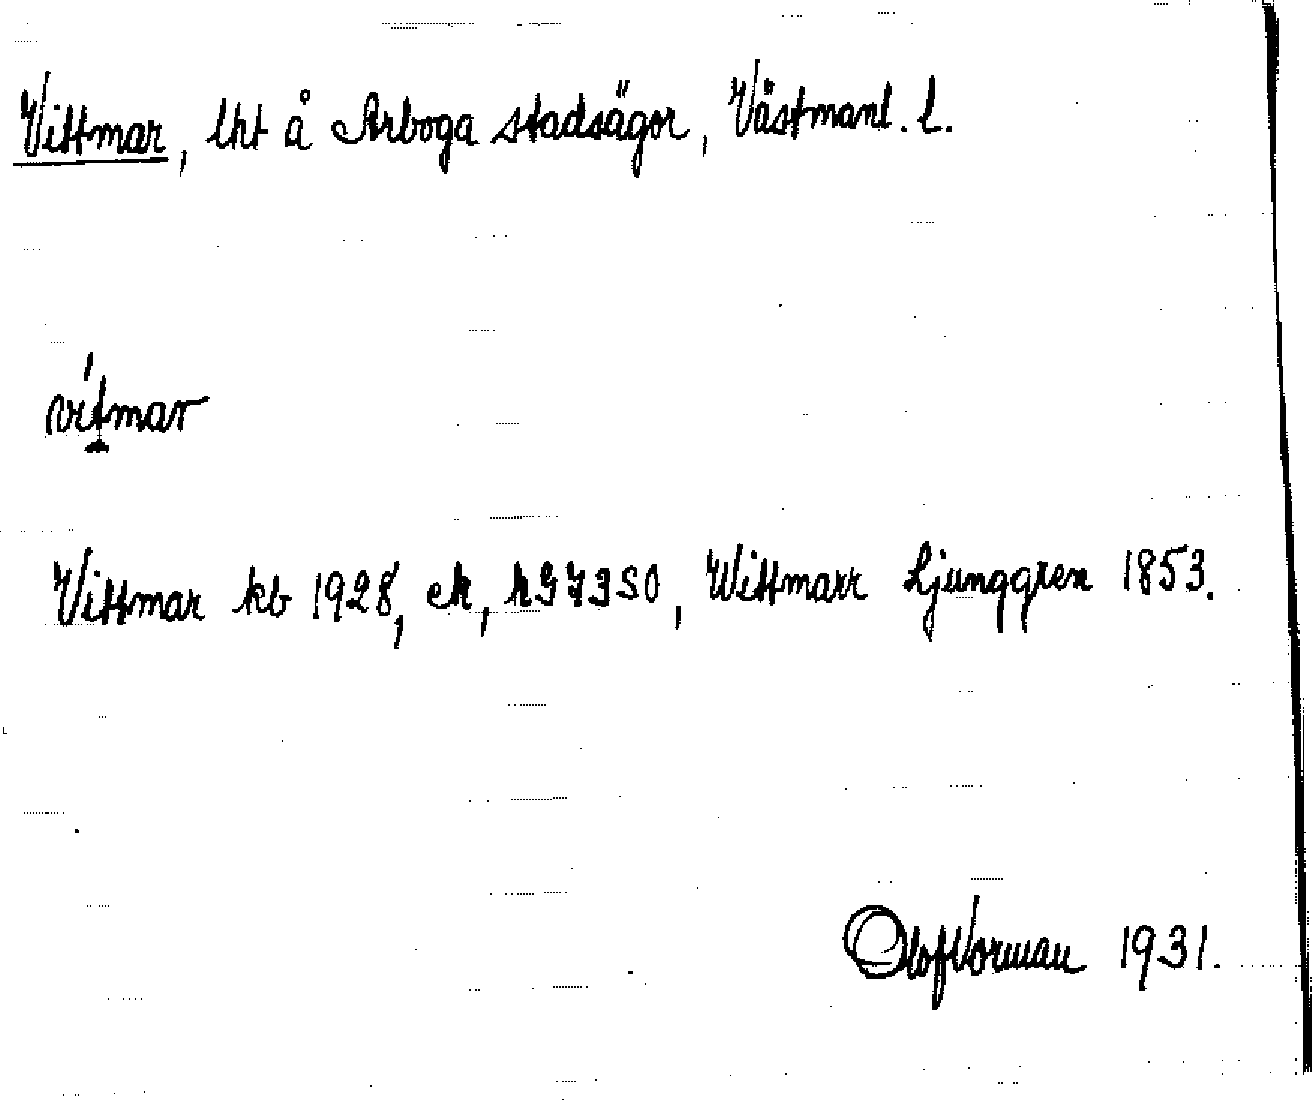 Vittmar, lht å Arboga stadsägor, Västmanl. l.
vítmar
Vittmar kb 1928, ek, h97350, Wittmarr Ljunggren 1853.
Olof Vorman 1931.